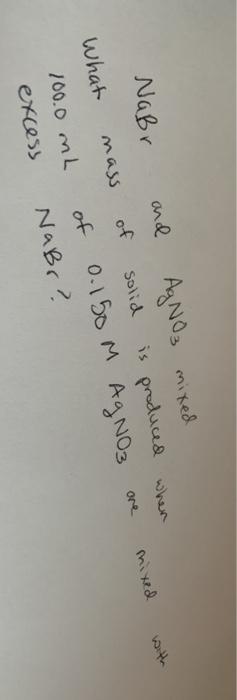 NaBr and AgNO3 mixed
What mass of solid is produced when
100.0 mL of 0.150 M AgNO3 are mixed with
excess NaBr?